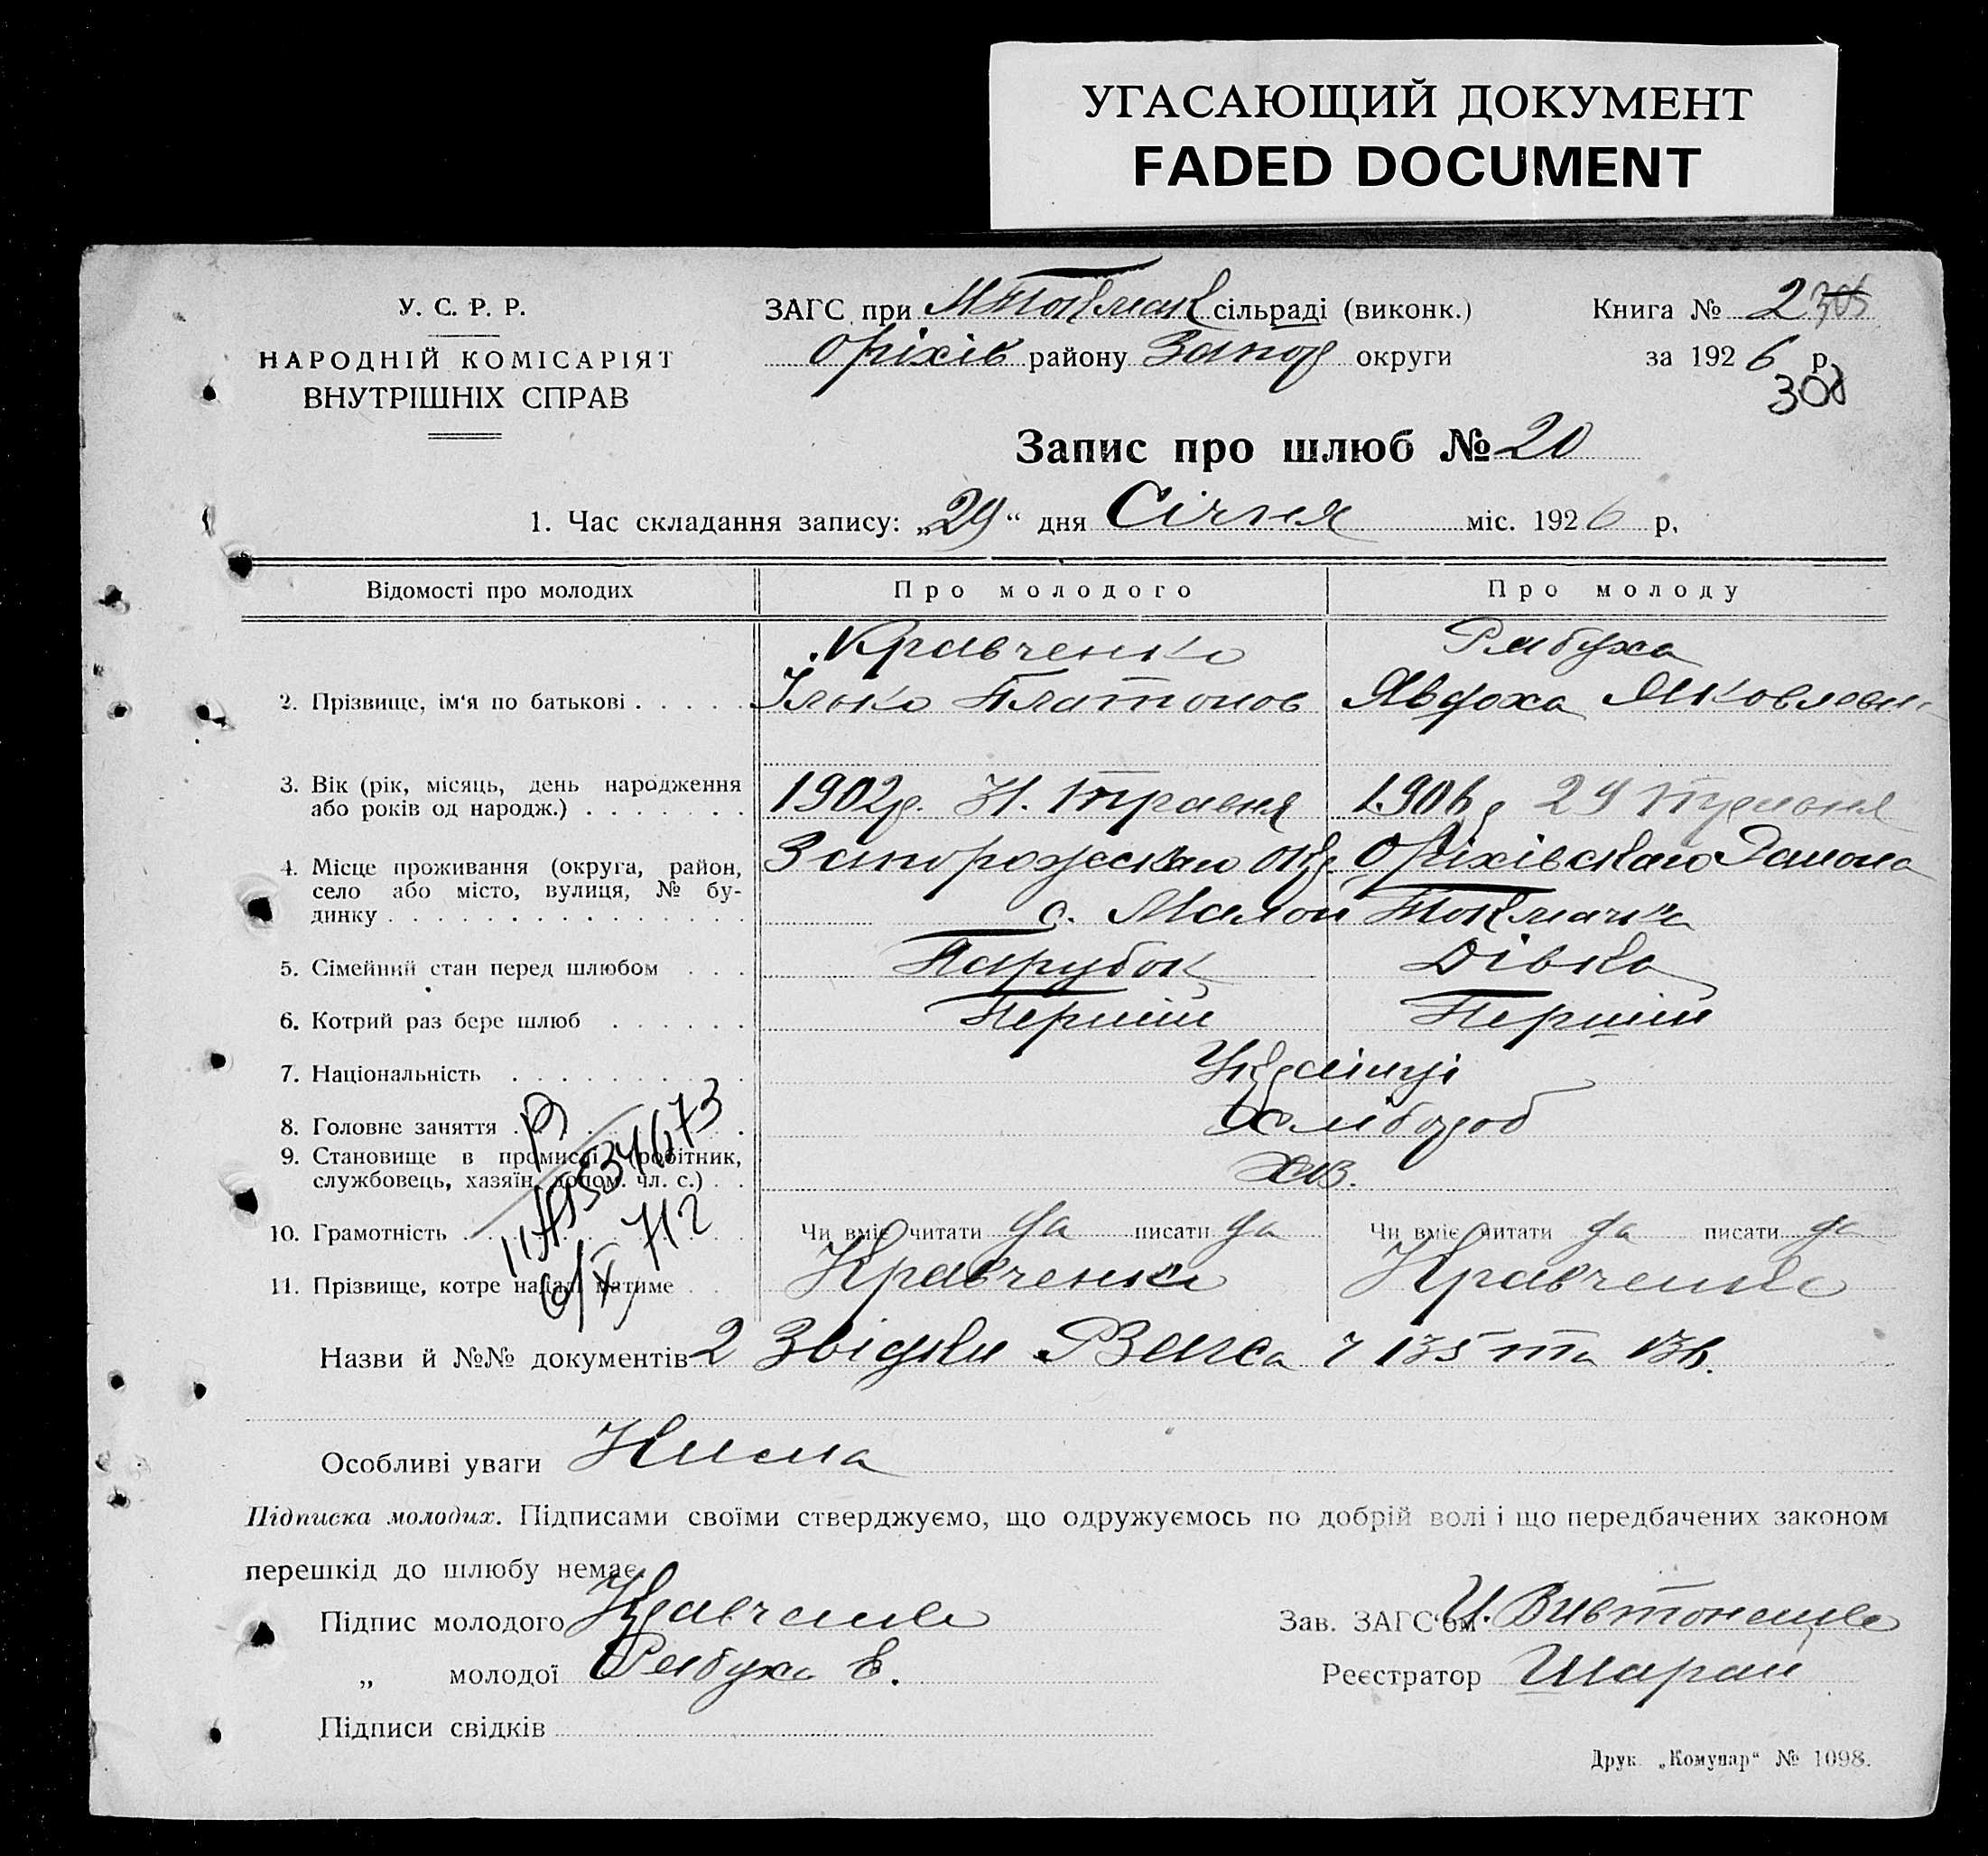 УГАСАЮЩИЙ ДОКУМЕНТ
FADED DOCUMENT
У. С. Р. Р.
НАРОДНІЙ КОМІСАРІЯТ
ВНУТРІШНІХ СПРАВ
ЗАГС при МТокмач сільраді (виконк.)
Оріхів району Запор округи
Книга № 2
за 1926 р.
308
Запис про шлюб № 20
1. Час складання запису: „29“ дня Січня міс. 1926 р.
Відомості про молодих
Про молодого
Про молоду
2. Прізвище, ім'я по батькові
Кравченко
Ілько Платонов
Рябуха
Явдоха Яковлевн
3. Вік (рік, місяць, день народження
або років од народж.)
1902р. Травня
1906р 29
4. Місце проживання (округа, район,
село або місто, вулиця, № бу-
динку
Запорожськаго окр. Оріхівськаго Району
с. Малои Токмачка
5. Сімейний стан перед шлюбом
Парубок
Дівка
6. Котрий раз бере шлюб
Перший
Перший
7. Національність
Українці
8. Головне заняття
Хлібороб
9. Становище в промислі (робітник,
службовець, хазяїн, допом. чл. с.)
10. Грамотність
Чи вміє читати да писати да
Чи вміє читати да писати да
11. Прізвище, котре надалі матиме
Кравченко
Кравченко
6/X 712
Назви й №№ документів 2 Звідки ч 135 та 136.
Особливі уваги Нима
Підписка молодих. Підписами своїми стверджуємо, що одружуємось по добрій волі і що передбачених законом
перешкід до шлюбу немає.
Підпис молодого Кравченко
„ молодої Рябуха Е.
Підписи свідків
Зав. ЗАГС'ом
Реєстратор Шарай
Друк. „Комунар“ № 1098.